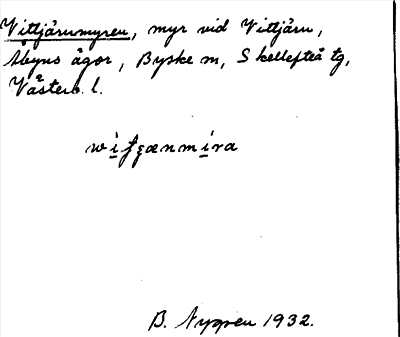 Vittjärnmyren, myr vid Vittjärn,
Åbyns ägor, Byske sn, Skellefteå tg,
Västerb. l.
B. Nygren 1932.